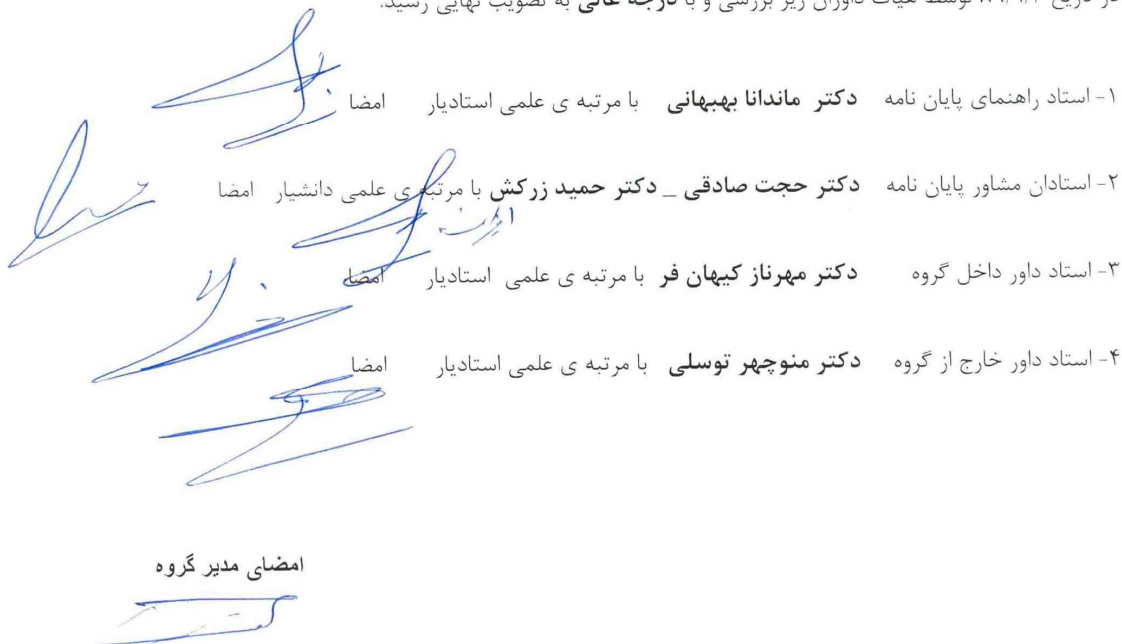 توسط هیات داوران زیر بررسی و با درجه عالی به تصویب نهایی رسید.
۱- استاد راهنمای پایان نامه دکتر ماندانا بهبهانی با مرتبه ی علمی استادیار امضا
۲- استادان مشاور پایان نامه دکتر حجت صادقی _ دکتر حمید زرکش با مرتبه ی علمی دانشیار امضا
۳- استاد داور داخل گروه دکتر مهرناز کیهان فر با مرتبه ی علمی استادیار امضا
۴- استاد داور خارج از گروه دکتر منوچهر توسلی با مرتبه ی علمی استادیار امضا
امضای مدیر گروه